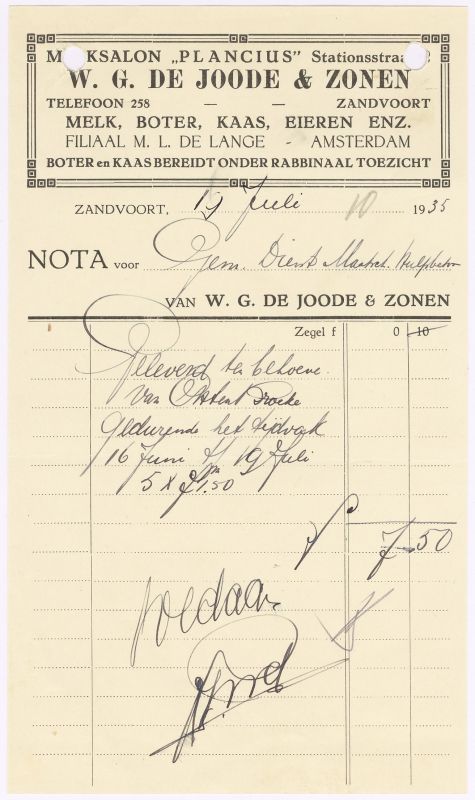 MELKSALON „PLANCIUS” Stationsstraat
W. G. DE JOODE & ZONEN
TELEFOON 258 — — ZANDVOORT
MELK, BOTER, KAAS, EIEREN ENZ.
FILIAAL M. L. DE LANGE - AMSTERDAM
BOTER en KAAS BEREIDT ONDER RABBINAAL TOEZICHT
ZANDVOORT, 19 Juli 10 1935
NOTA voor Gem. Dienst Maatsch. Hulpbetoon
VAN W. G. DE JOODE & ZONEN
Zegel f 0 10
Geleverd ten behoeve
van
gedurende het tijdvak
16 Juni t/m 19 Juli
5 x ƒ1.50
ƒ 7-50
Voldaan